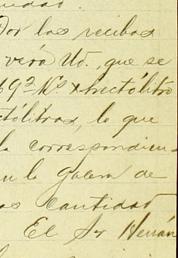 Por los recibos
verá Ud., que se
hectólitro
tólitros, lo que
la correspondien
en la galera de
cantidad
El Sr Hernán